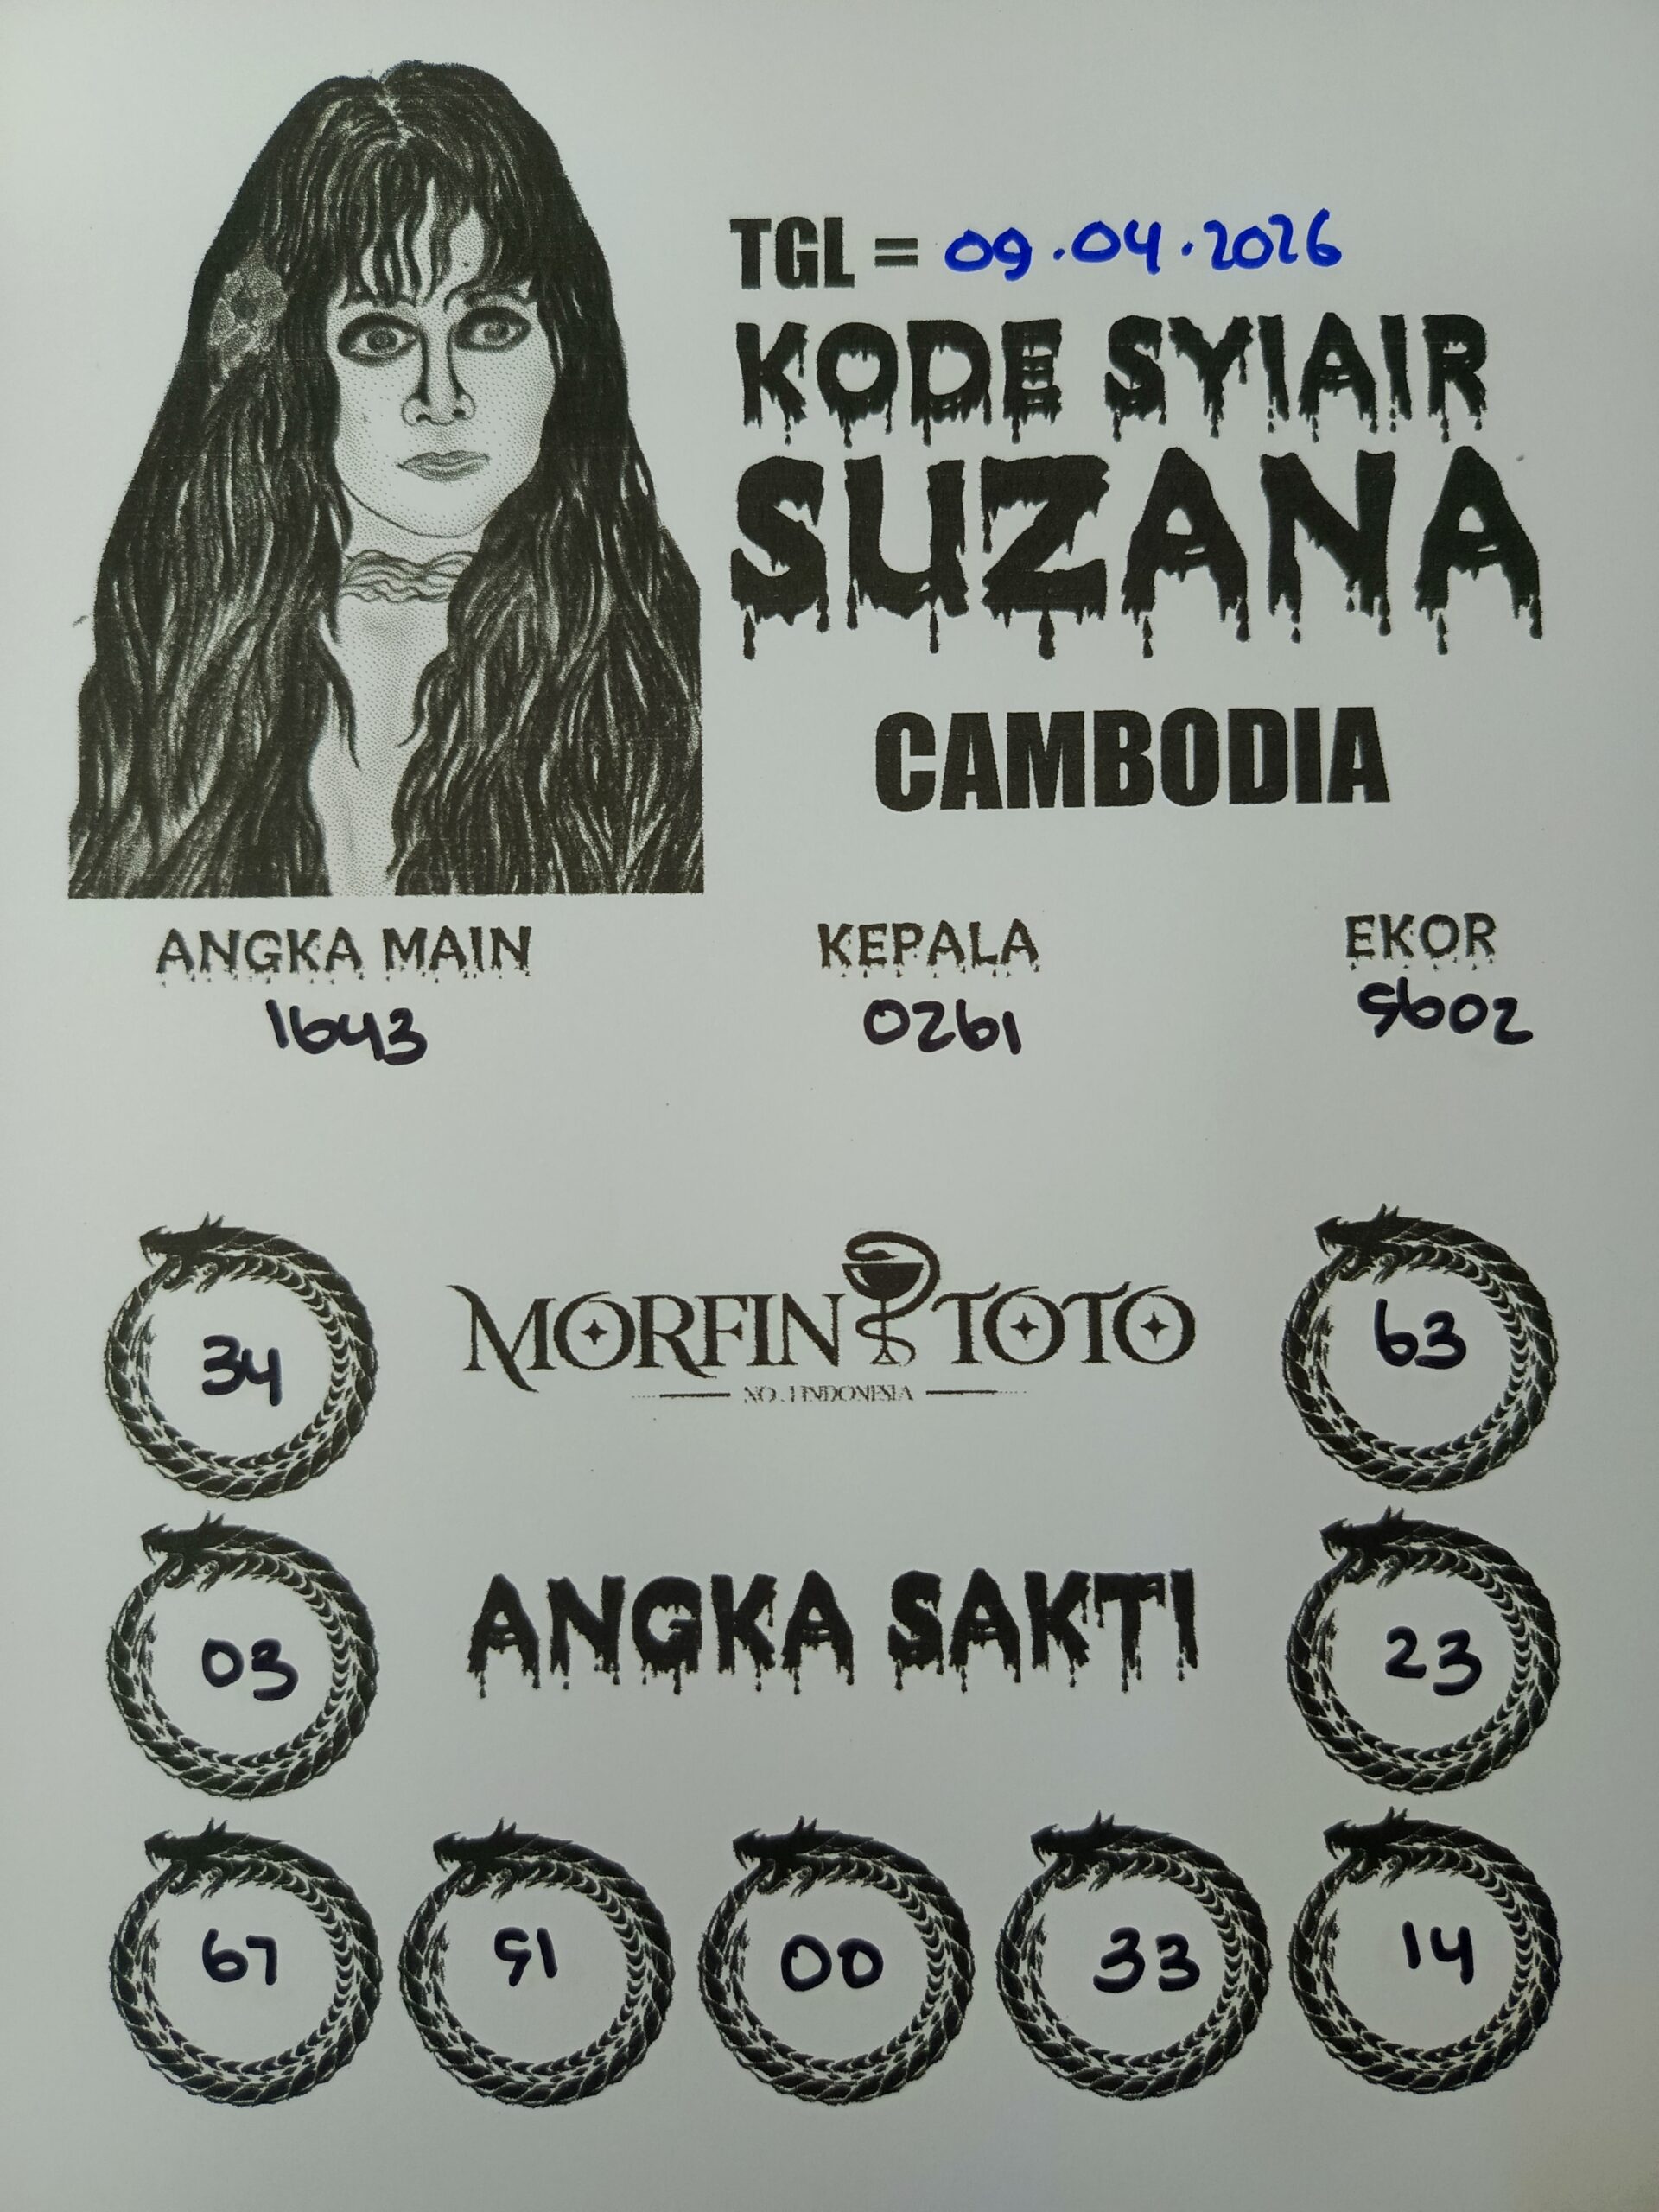 TGL = 09.04.2026
KODE SYIAIR
SUZANA
CAMBODIA
ANGKA MAIN KEPALA EKOR
1643 0261 5602
34 MORFIN TOTO 63
NO.1 INDONESIA
03 ANGKA SAKTI 23
67 51 00 33 14